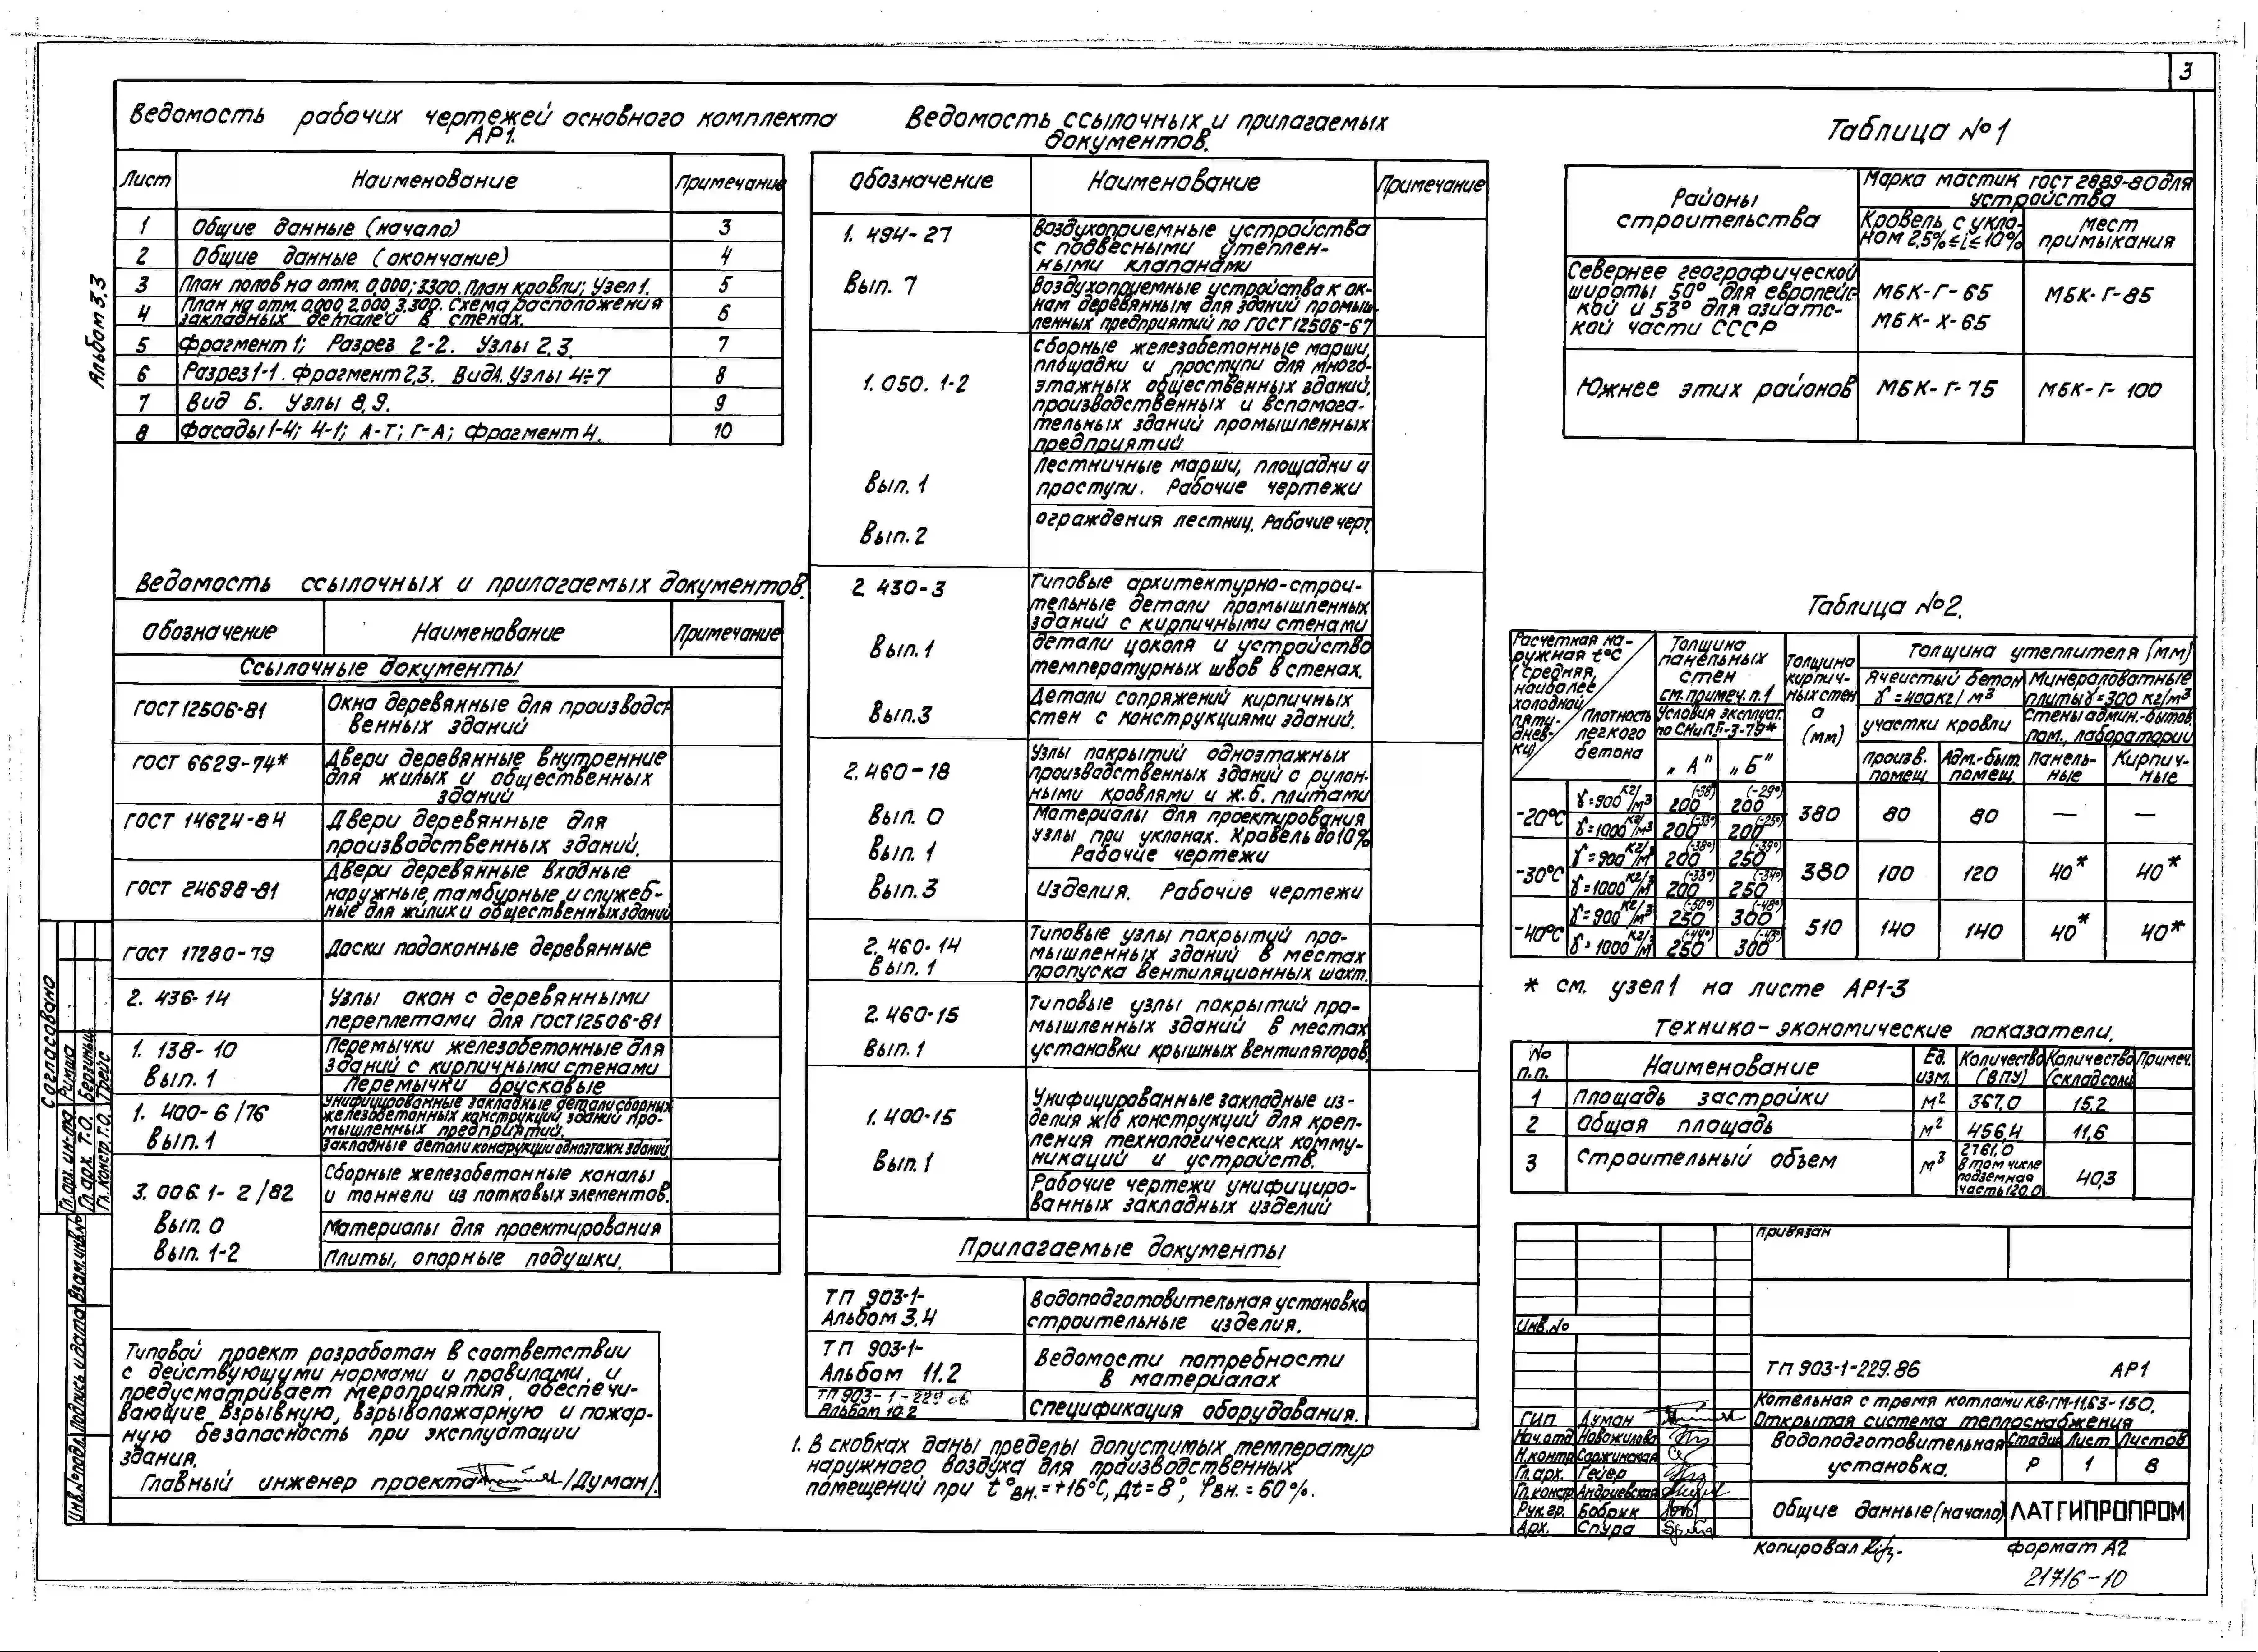 3
Альбом 3,3
Ведомость рабочих чертежей основного комплекта
АР1.
Лист Наименование Примечание
1 Общие данные (начало) 3
2 Общие данные (окончание) 4
3 План полов на отм. 0,000; 3300. План кровли; Узел 1. 5
4 План на отм. 0.000 2.000 3.300. Схема расположения
закладных деталей в стенах. 6
5 Фрагмент 1; Разрез 2-2. Узлы 2,3. 7
6 Разрез 1-1. Фрагмент 2,3. Вид А. Узлы 4÷7 8
7 Вид Б. Узлы 8,9. 9
8 Фасады 1-4; 4-1; А-Г; Г-А; Фрагмент 4. 10
Ведомость ссылочных и прилагаемых документов.
Обозначение Наименование Примечание
Ссылочные документы
ГОСТ 12506-81 Окна деревянные для производст
венных зданий
ГОСТ 6629-74* Двери деревянные внутренние
для жилых и общественных
зданий
ГОСТ 14624-84 Двери деревянные для
производственных зданий.
ГОСТ 24698-81 Двери деревянные входные
наружные, тамбурные и служеб-
ные для жилих и общественных зданий
ГОСТ 17280-79 Доски подоконные деревянные
2. 436-14 Узлы окон с деревянными
переплетами для ГОСТ 12506-81
1. 138-10 Перемычки железобетонные для
зданий с кирпичными стенами
Вып. 1 Перемычки брусковые
1. 400-6/76 Унифицированные закладные детали сборных
железобетонных конструкций зданий про-
мышленных предприятий.
Вып. 1 Закладные детали конструкции одноэтажн. зданий.
3. 006.1-2/82 Сборные железобетонные каналы
и тоннели из лотковых элементов.
Вып. 0 Материалы для проектирования
Вып. 1-2 Плиты, опорные подушки.
Типовой проект разработан в соответствии
с действующими нормами и правилами, и
предусматривает мероприятия, обеспечи-
вающие взрывную, взрывопожарную и пожар-
ную безопасность при эксплуатации
здания.
Главный инженер проекта /Думан/.
Ведомость ссылочных и прилагаемых
документов.
Обозначение Наименование Примечание
1. 494-27 Воздухоприемные устройства
с подвесными утеплен-
ными клапанами
Вып. 7 Воздухоприемные устройства к ок-
нам деревянным для зданий промыш-
ленных предприятий по ГОСТ 12506-67
1. 050. 1-2 Сборные железобетонные марши,
площадки и проступи для много-
этажных общественных зданий,
производственных и вспомога-
тельных зданий промышленных
предприятий
Вып. 1 Лестничные марши, площадки и
проступи. Рабочие чертежи
Вып. 2 Ограждения лестниц. Рабочие черт.
2. 430-3 Типовые архитектурно-строи-
тельные детали промышленных
зданий с кирпичными стенами
Вып. 1 Детали цоколя и устройство
температурных швов в стенах.
Вып. 3 Детали сопряжений кирпичных
стен с конструкциями зданий.
2. 460-18 Узлы покрытий одноэтажных
производственных зданий с рулон-
ными кровлями и ж.б. плитами
Вып. 0 Материалы для проектирования
Вып. 1 Узлы при уклонах. Кровель до 10%
Рабочие чертежи
Вып. 3 Изделия. Рабочие чертежи
2. 460-14 Типовые узлы покрытий про-
мышленных зданий в местах
Вып. 1 пропуска вентиляционных шахт.
2. 460-15 Типовые узлы покрытий про-
мышленных зданий в местах
Вып. 1 установки крышных вентиляторов.
1. 400-15 Унифицированные закладные из-
делия ж/б конструкций для креп-
ления технологических комму-
никаций и устройств.
Вып. 1 Рабочие чертежи унифициро-
ванных закладных изделий
Прилагаемые документы
ТП 903-1- Водоподготовительная установка
Альбом 3.4 строительные изделия.
ТП 903-1- Ведомости потребности
Альбом 11.2 в материалах
ТП 903-1-229.86
Альбом 10.2 Спецификация оборудования.
1. В скобках даны пределы допустимых температур
наружного воздуха для производственных
помещений при t°вн.=+16°С, Δt=8°, φвн.=60%.
Таблица №1
Районы строительства Марка мастик ГОСТ 2889-80 для устройства
Кровель с укло-
ном 2,5%≤i≤10% мест
примыкания
Севернее географической
широты 50° для европейс-
кой и 53° для азиатс-
кой части СССР МБК-Г-65
МБК-Х-65 МБК-Г-85
Южнее этих районов МБК-Г-75 МБК-Г-100
Таблица №2.
Расчетная на-
ружная t°С
(средняя,
наиболее
холодной
пяти-
днев-
ки)
Плотность
легкого
бетона
Толщина
панельных
стен
см. примеч. п.1
Условия эксплуат.
по СНиП II-3-79*
„А" „Б"
Толщина
кирпич-
ных стен
а
(мм)
Толщина утеплителя (мм)
Ячеистый бетон
γ=400кг/м³
Минераловатные
плиты γ=300 кг/м³
участки кровли Стены админ.-бытов.
пом., лаборатории
произв.
помещ. Адм.-быт.
помещ. Панель-
ные Кирпич-
ные
-20°С γ=900 кг/м³ 200(-38°) 200(-29°) 380 80 80 — —
γ=1000 кг/м³ 200(-33°) 200(-25°)
-30°С γ=900 кг/м³ 200(-38°) 250(-39°) 380 100 120 40* 40*
γ=1000 кг/м³ 200(-33°) 250(-34°)
-40°С γ=900 кг/м³ 250(-50°) 300(-48°) 510 140 140 40* 40*
γ=1000 кг/м³ 250(-44°) 300(-43°)
* см. узел 1 на листе АР1-3
Технико-экономические показатели.
№
п.п. Наименование Ед.
изм. Количество
(ВПУ) Количество
(склад соли) Примеч.
1 Площадь застройки м² 367,0 15,2
2 Общая площадь м² 456,4 11,6
3 Строительный объем м³ 2761,0
в том числе
подземная
часть 120,0 40,3
Привязан
Инв.№
ТП 903-1-229.86 АР1
Котельная с тремя котлами КВ-ГМ-11,63-150.
Открытая система теплоснабжения
ГИП Думан
Нач.отд Новожилова
Н.контр Саржинская
Гл.арх. Гейер
Гл.констр. Андриевская
Рук.гр. Бобрик
Арх. Спура
Водоподготовительная
установка.
Стадия Лист Листов
Р 1 8
Общие данные (начало) ЛАТГИПРОПРОМ
Копировал
формат А2
21716-10
Согласовано
Гл.арх. ин-та Римша
Гл.арх. Т.О. Берзиньш
Гл.констр.Т.О. Трейс
Инв.№подл. Подпись и дата Взам.инв.№